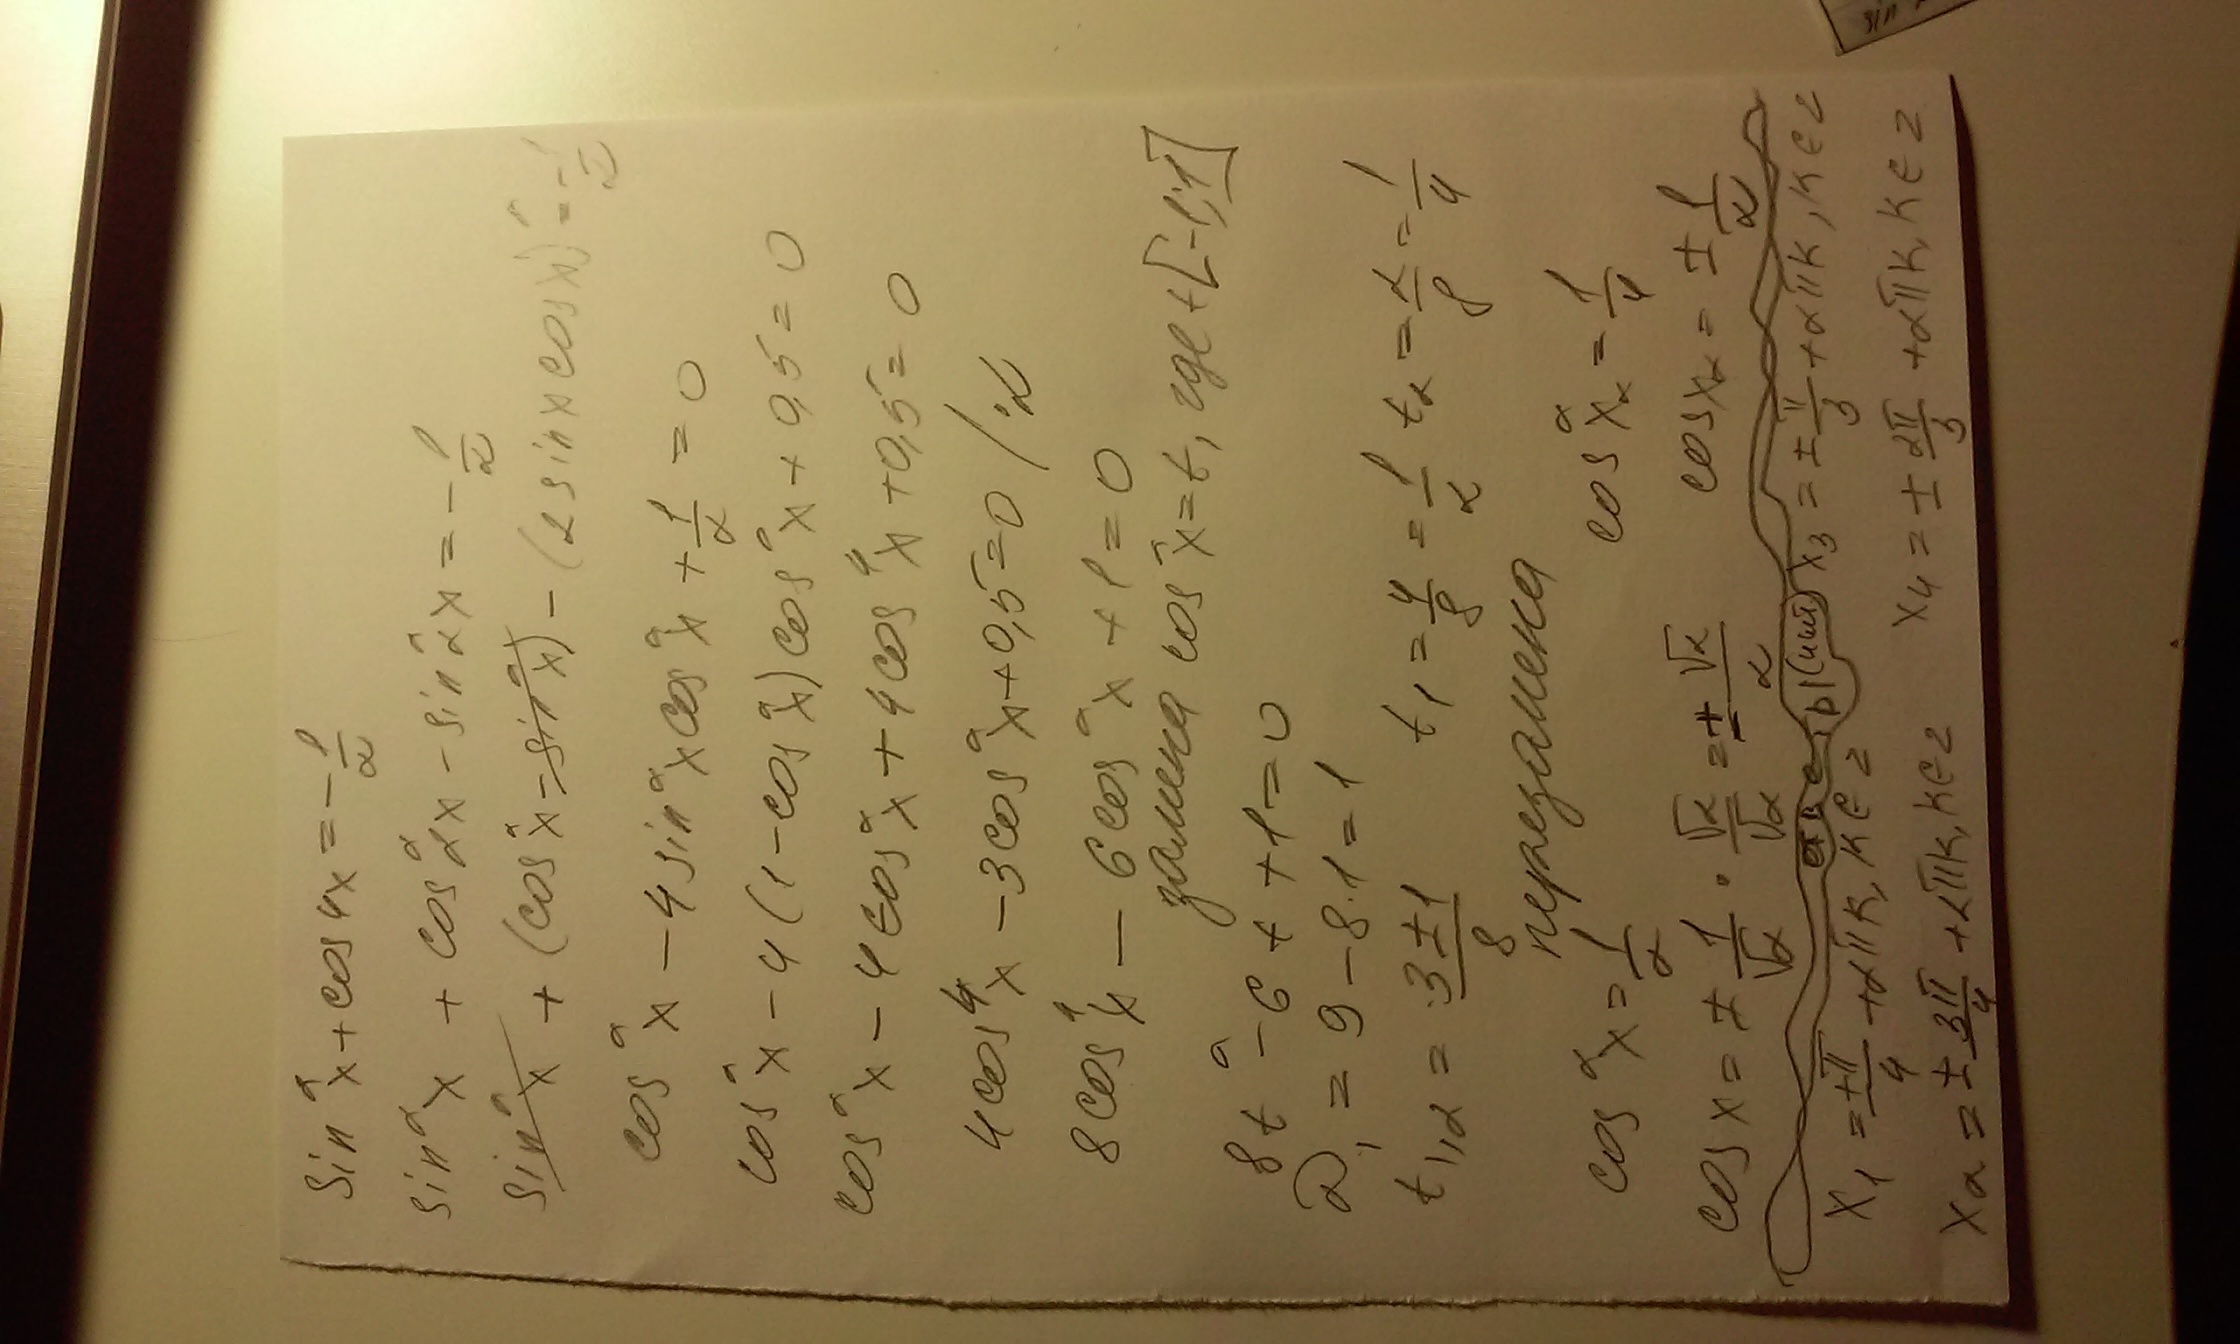 sin²x + cos4x = -1/2
sin²x + cos²2x - sin²2x = -1/2
sin²x + (cos²x - sin²x) - (2sinxcosx)² = -1/2
cos²x - 4sin²xcos²x + 1/2 = 0
cos²x - 4(1-cos²x)cos²x + 0,5 = 0
cos²x - 4cos²x + 4cos⁴x + 0,5 = 0
4cos⁴x - 3cos²x + 0,5 = 0 /·2
8cos⁴x - 6cos²x + 1 = 0
замена cos²x = t, где t[-1;1]
8t² - 6t + 1 = 0
D₁ = 9 - 8·1 = 1
t₁,₂ = 3±1/8 t₁ = 4/8 = 1/2 t₂ = 2/8 = 1/4
перезамена
cos²x = 1/2 cos²x₂ = 1/4
cosx = ± 1/√2 · √2/√2 = ± √2/2 cosx₂ = ± 1/2
x₁ = ±π/4 + 2πk, k∈z x₃ = ± π/3 + 2πk, k∈z
x₂ = ± 3π/4 + 2πk, k∈z x₄ = ± 2π/3 + 2πk, k∈z
sin